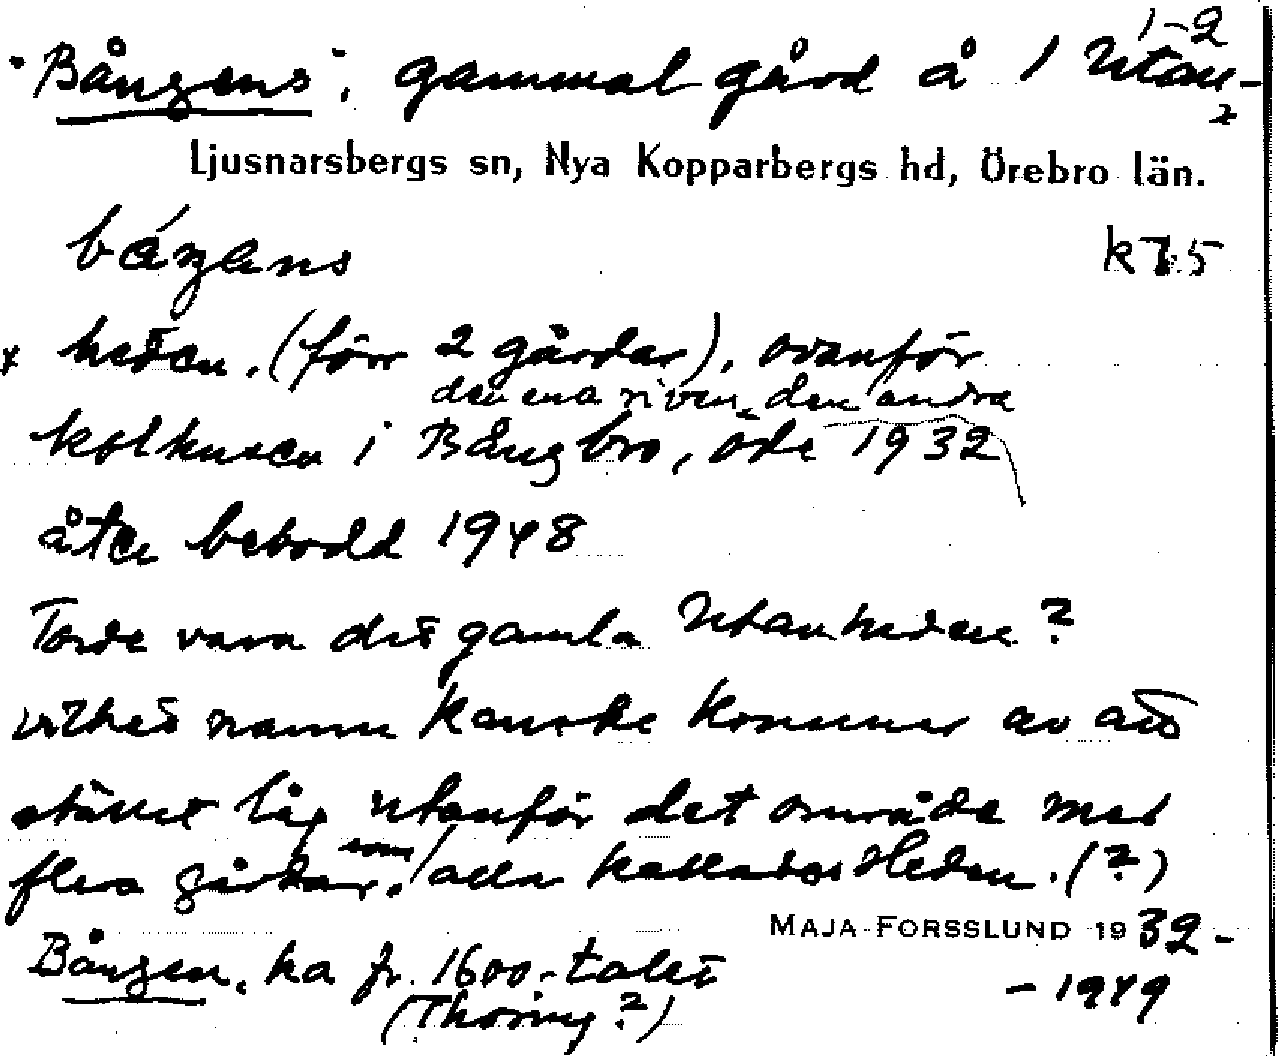 1-2
"Bångens", gammal gård å / Utan-
2
Ljusnarsbergs sn, Nya Kopparbergs hd, Örebro län.
båŋens k 7.5
x heden. (förr 2 gårdar), ovanför
den ena riven, den andra
kolhusen i Bångbro, öde 1932
åter bebodd 1948
Torde vara det gamla Utanheden?
vilket namn kanske kommer av att
stället låg utanför det område med
flera gårdar, som alla kallades Heden. (?)
MAJA FORSSLUND 1932-
Bången, ka fr. 1600-talet - 1949
(Thoring?)